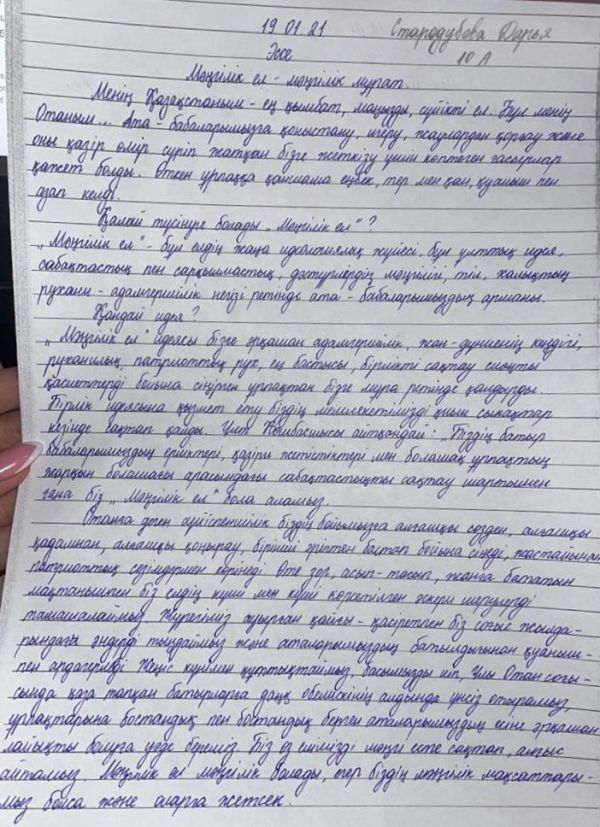 19.01.21 Стародубова Дарья
Эссе 10 А
Мәңгілік ел - мәңгілік мұрат.
Менің Қазақстаным - ең қымбат, маңызды, сүйікті ел. Бұл менің
Отаным... Ата - бабаларымызға қоныстану, игеру, жаулардан қорғау және
оны қазір өмір сүріп жатқан бізге жеткізу үшін көптеген ғасырлар
қажет болды. Өткен ұрпаққа қаншама еңбек, тер мен қан, қуаныш пен
азап келді.
Қалай түсінуге болады „Мәңгілік ел"?
„Мәңгілік ел" - бұл елдің жаңа идеологиялық жүйесі, бұл ұлттық идея,
сабақтастық пен сарқылмастық, дәстүрлердің мәңгілігі, тіл, халықтың
рухани - адамгершілік негізі ретінде ата - бабаларымыздың арманы.
Қандай идея?
„Мәңгілік ел" идеясы бізге әрқашан адамгершілік, жан-дүниенің кеңдігі,
руханилық, патриоттық рух, ең бастысы, бірлікті сақтау сияқты
қасиеттерді бойына сіңірген ұрпақтан бізге мұра ретінде қалдырды.
Бірлік идеясына қызмет ету біздің мемлекетімізді қиын сынақтар
кезінде сақтап қалды. Ұлт Көшбасшысы айтқандай: „Біздің батыр
бабаларымыздың ерліктері, қазіргі жетістіктері мен болашақ ұрпақтың
жарқын болашағы арасындағы сабақтастықты сақтау шартымен
ғана біз „Мәңгілік ел" бола аламыз.
Отанға деген сүйіспеншілік біздің бойымызға алғашқы сөзден, алғашқы
қадамнан, алғашқы қоңырау, бірінші әріптен бастап бойына сіңеді, жастайынан
патриоттық сезімдермен көрінеді. Өте зор, асып-тасып, жанға бататын
мақтанышпен біз елдің күші мен күші көрсетілген әскери шерулерді
тамашалаймыз. Жүрегіміз ауырған қайғы - қасіретпен біз соғыс жылда-
рындағы әндерді тыңдаймыз және аталарымыздың батылдығынан қуаныш-
пен ардагерлерді Жеңіс күнімен құттықтаймыз, басымызды иіп, Ұлы Отан соғы-
сында қаза тапқан батырларға даңқ обелискінің алдында үнсіз отырамыз,
ұрпақтарына бостандық пен бостандық берген аталарымыздың есіне әрқашан
лайықты болуға уәде береміз. Біз өз елімізді мәңгі есте сақтап, алғыс
айтамыз. Мәңгілік ел мәңгілік болады, егер біздің мәңгілік мақсаттары-
мыз болса және оларға жетсек.